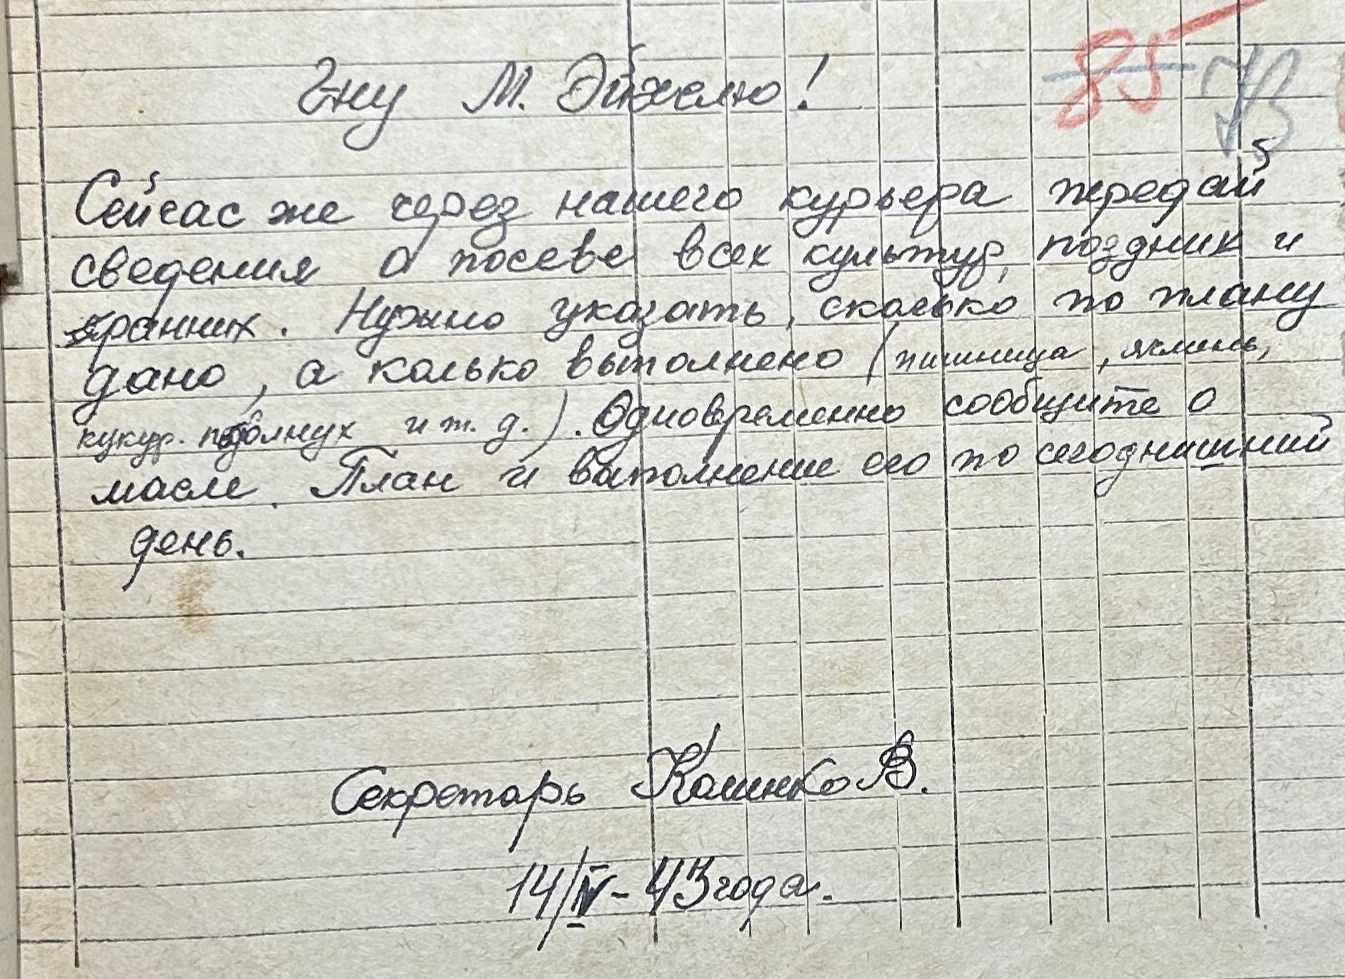 Г-ну М. Эйхелю!
85 73
Сейчас же через нашего курьера передай
сведения о посеве всех культур, поздних и
ранних. Нужно указать, сколько по плану
дано, а колько выполнено (пшиница, ячмень,
кукур. подсолнух и т. д.). Одновременно сообщите о
масле. План и выполнение его по сегоднишний
день.
Секретарь В.
14/IV - 43 года.